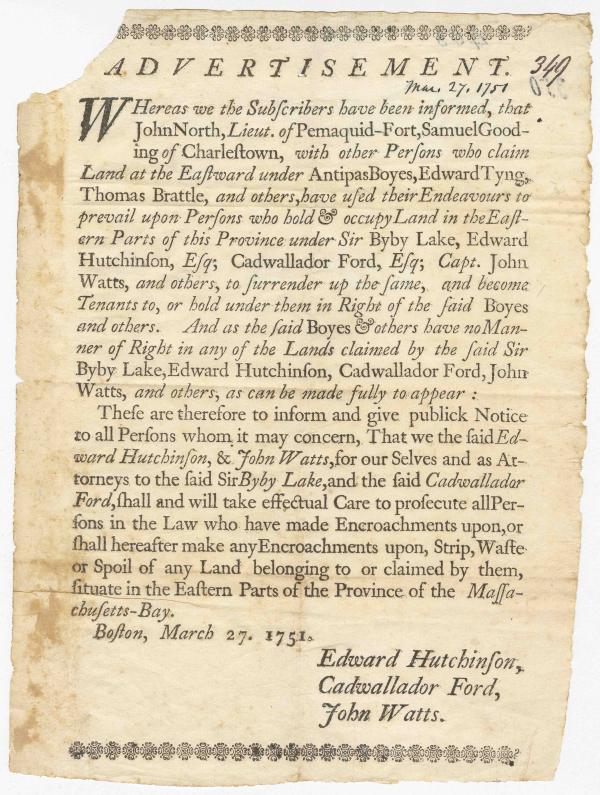 ADVERTISEMENT.
349
Mar. 27. 1751
WHereas we the Subſcribers have been informed, that
John North, Lieut. of Pemaquid-Fort, Samuel Good-
ing of Charleſtown, with other Perſons who claim
Land at the Eaſtward under Antipas Boyes, Edward Tyng,
Thomas Brattle, and others, have uſed their Endeavours to
prevail upon Perſons who hold & occupy Land in the Eaſt-
ern Parts of this Province under Sir Byby Lake, Edward
Hutchinſon, Eſq; Cadwallador Ford, Eſq; Capt. John
Watts, and others, to ſurrender up the ſame, and become
Tenants to, or hold under them in Right of the ſaid Boyes
and others. And as the ſaid Boyes & others have no Man-
ner of Right in any of the Lands claimed by the ſaid Sir
Byby Lake, Edward Hutchinſon, Cadwallador Ford, John
Watts, and others, as can be made fully to appear :
Theſe are therefore to inform and give publick Notice
to all Perſons whom it may concern, That we the ſaid Ed-
ward Hutchinſon, & John Watts, for our Selves and as At-
torneys to the ſaid Sir Byby Lake, and the ſaid Cadwallador
Ford, ſhall and will take effectual Care to proſecute all Per-
ſons in the Law who have made Encroachments upon, or
ſhall hereafter make any Encroachments upon, Strip, Waſte
or Spoil of any Land belonging to or claimed by them,
ſituate in the Eaſtern Parts of the Province of the Maſſa-
chuſetts-Bay.
Boſton, March 27. 1751.
Edward Hutchinſon,
Cadwallador Ford,
John Watts.